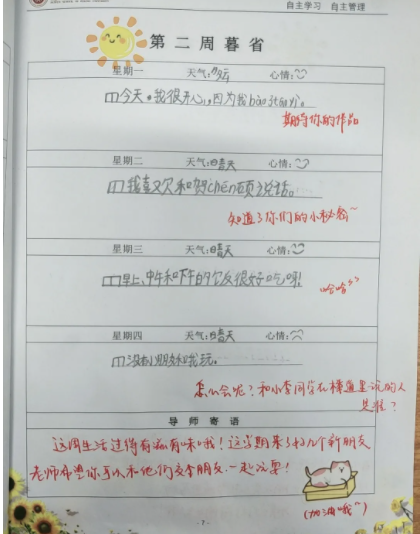 自主学习 自主管理
第二周暮省
星期一 天气:多云 心情:
今天,我很开心,因为我
期待你的作品
星期二 天气:晴天 心情:
我喜欢和贺chen硕说话。
知道了你们的小秘密~
星期三 天气:晴天 心情:
早上、中午和下午的饭很好吃呀!
哈哈~
星期四 天气:晴天 心情:
没有小朋友和我玩。
怎么会呢?和小李同学在楼道里说的人
是谁?
导师寄语
这周生活过得有滋有味哦!这学期来了好几个新朋友
老师希望你可以和他们交个朋友,一起玩耍!
(加油哦~)
-7-